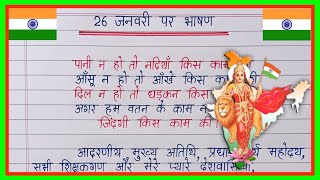 26 जनवरी पर भाषण
पानी न हो तो नदियाँ किस काम
आँसू न हो तो आँखें किस का
दिल न हो तो धड़कन किस
अगर हम वतन के काम न
जिंदगी किस काम की
आदरणीय मुख्य अतिथि, प्रधा महोदय,
सभी शिक्षकगण और मेरे प्यारे देशवासियों,